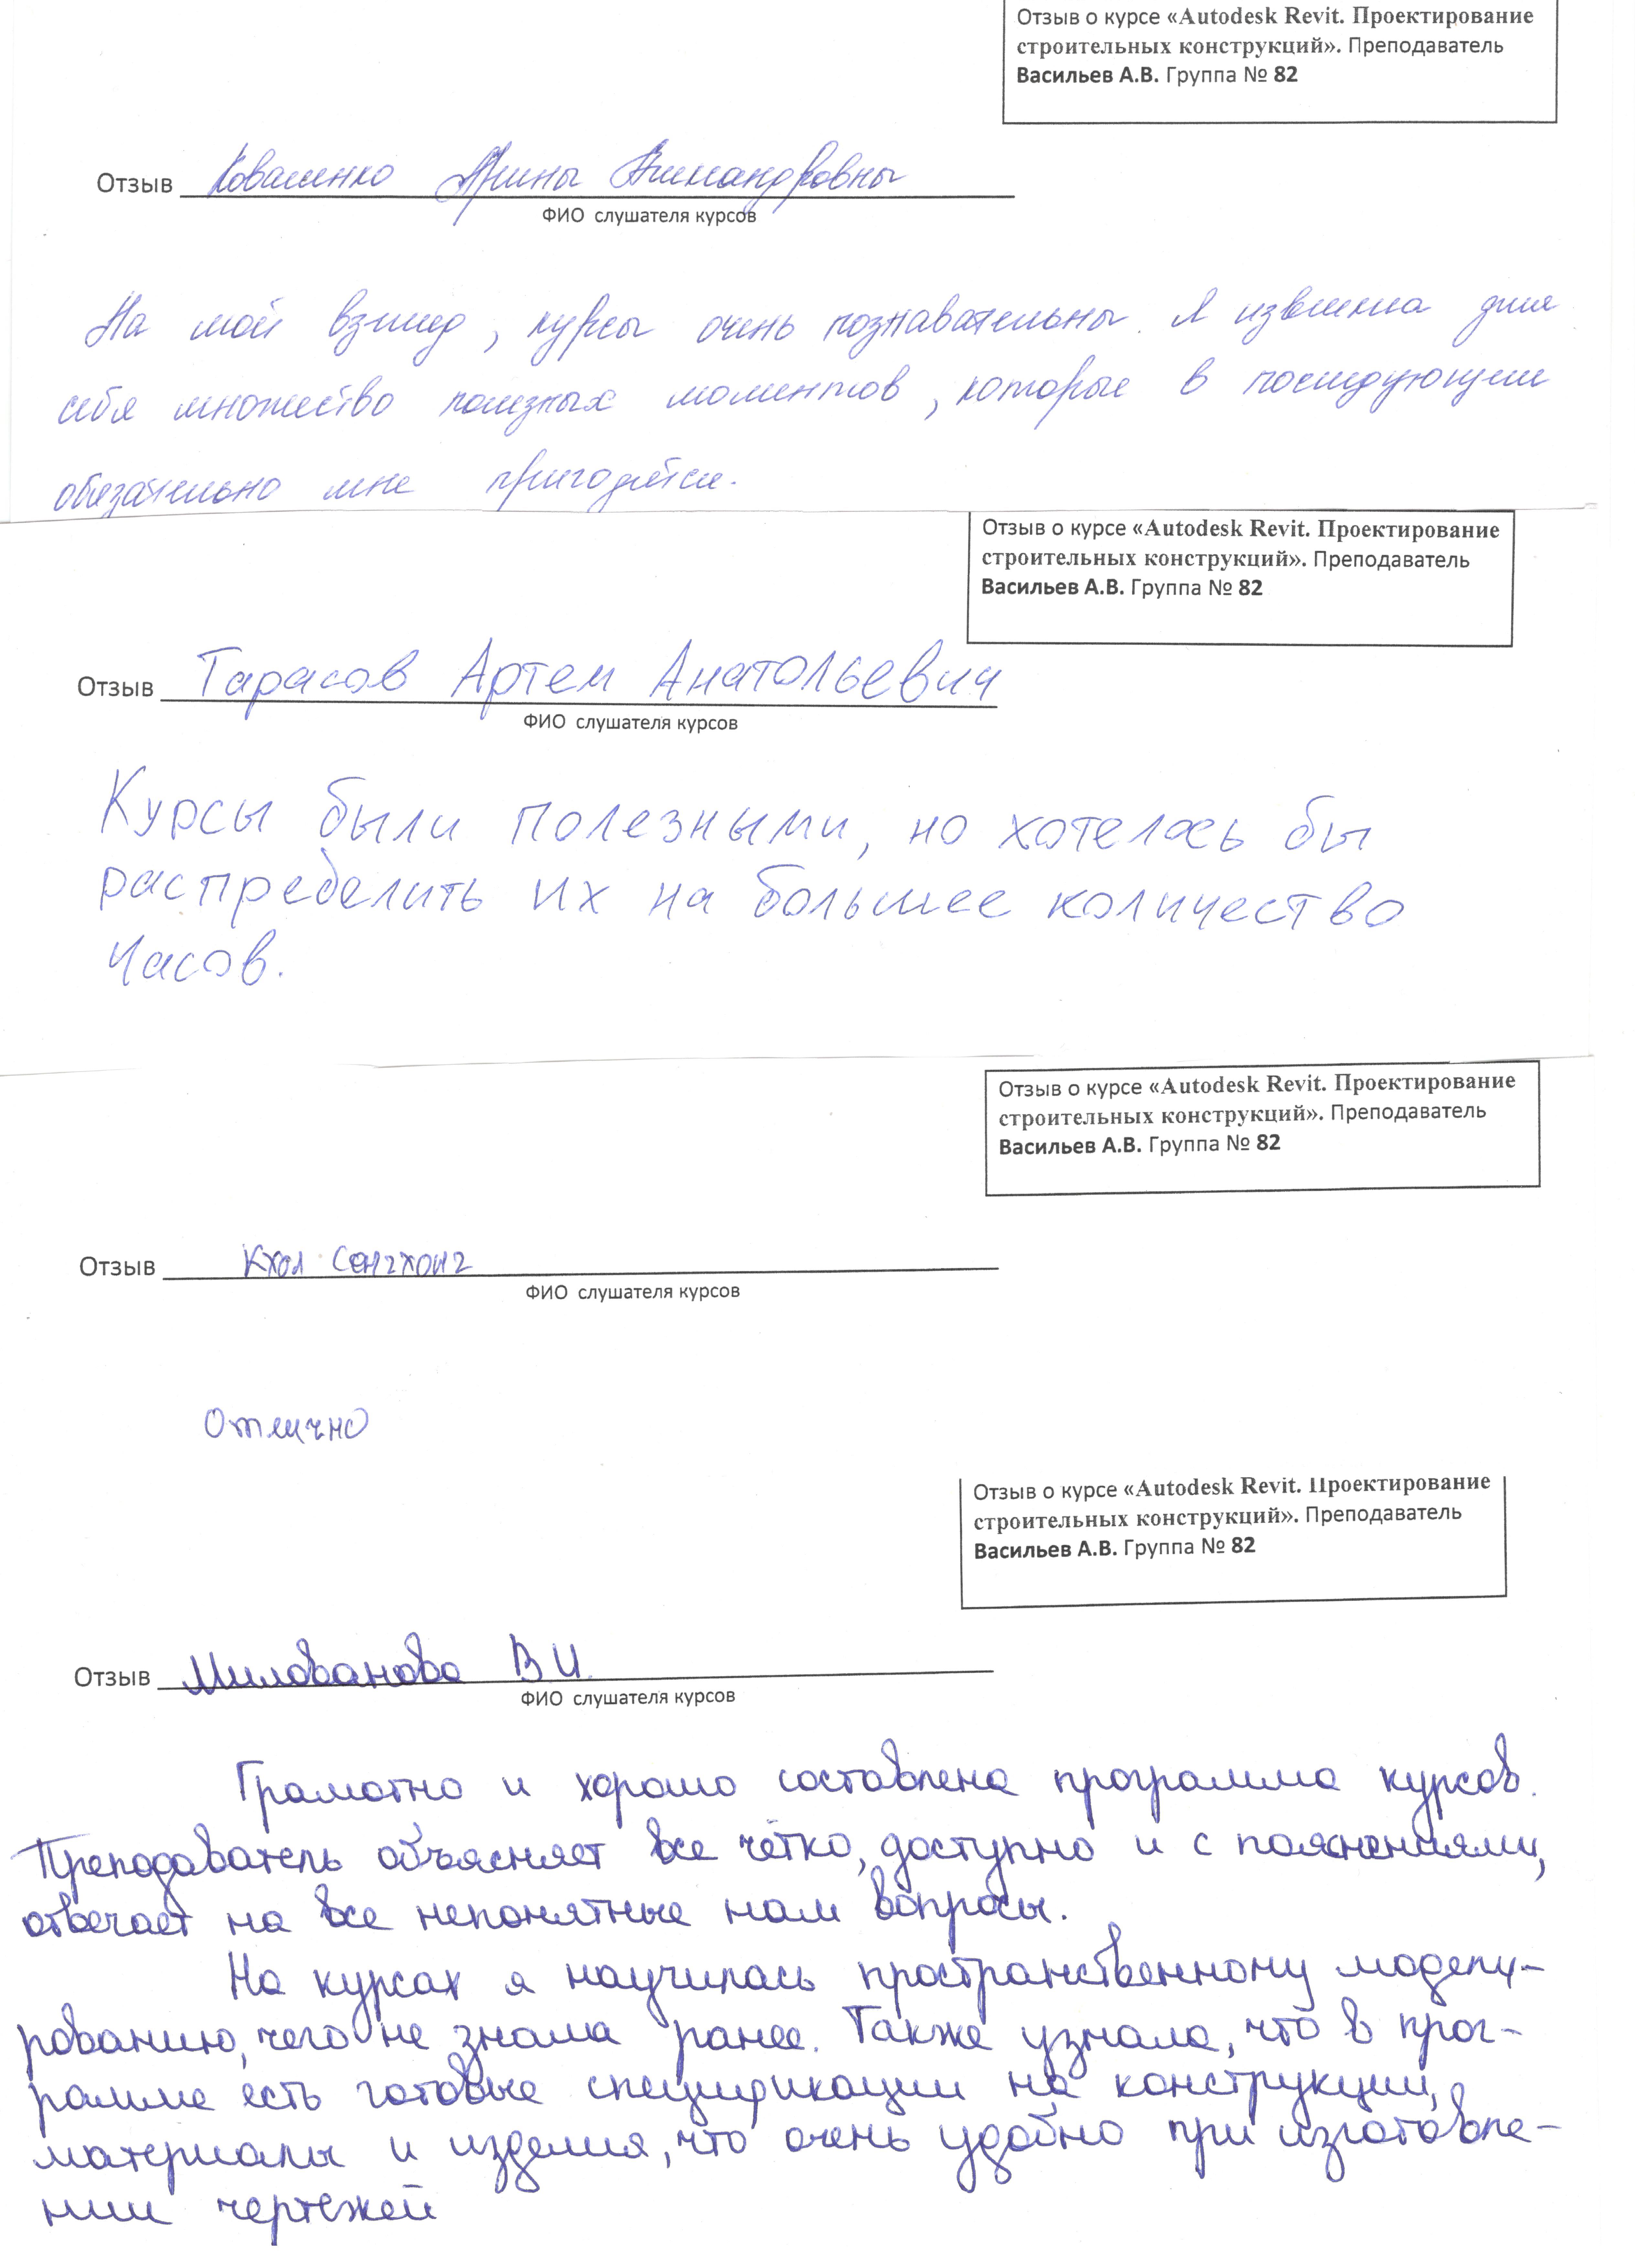 Отзыв о курсе «Autodesk Revit. Проектирование
строительных конструкций». Преподаватель
Васильев А.В. Группа № 82
Отзыв Коваленко Арины Александровны
ФИО слушателя курсов
На мой взгляд, курсы очень познавательны. Я извлекла для
себя множество полезных моментов, которые в последующем
обязательно мне пригодятся.
Отзыв о курсе «Autodesk Revit. Проектирование
строительных конструкций». Преподаватель
Васильев А.В. Группа № 82
Отзыв Тарасов Артем Анатольевич
ФИО слушателя курсов
Курсы были полезными, но хотелось бы
распределить их на большее количество
часов.
Отзыв о курсе «Autodesk Revit. Проектирование
строительных конструкций». Преподаватель
Васильев А.В. Группа № 82
Отзыв Кхол Сенгхонг
ФИО слушателя курсов
Отлично
Отзыв о курсе «Autodesk Revit. Проектирование
строительных конструкций». Преподаватель
Васильев А.В. Группа № 82
Отзыв Милованова В И.
ФИО слушателя курсов
Грамотно и хорошо составлена программа курсов.
Преподаватель объясняет все чётко, доступно и с пояснениями,
отвечает на все непонятные нам вопросы.
На курсах я научилась пространственному модели-
рованию, чего не знала ранее. Также узнала, что в прог-
рамме есть готовые спецификации на конструкции,
материалы и изделия, что очень удобно при изготовле-
нии чертежей